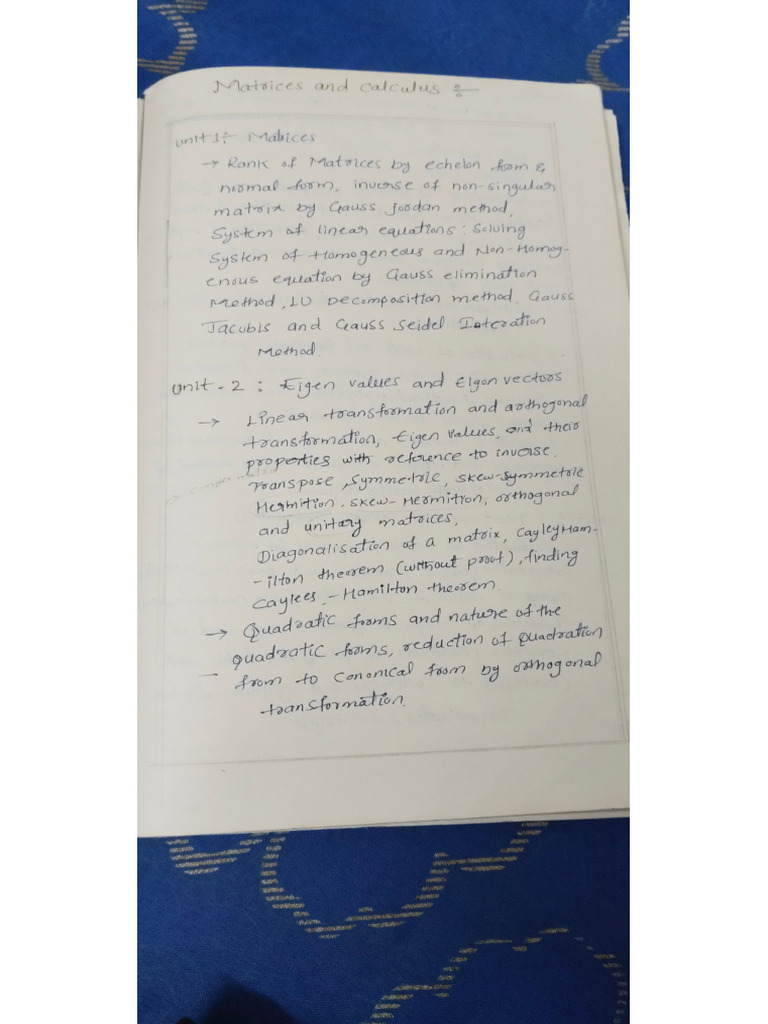 Matrices and calculus :-
unit 1:- Matrices
→ Rank of Matrices by echelon from &
normal form, inverse of non-singular
matrix by Gauss Jordan method,
System of linear equations: Solving
System of Homogeneous and Non-Homog-
enous equation by Gauss elimination
Method, LU Decomposition method. Gauss
Jacubis and Gauss Seidel Interation
Method.
unit - 2 : Eigen values and Eigon vectors
→ Linear transformation and arthogonal
transformation, Eigen values, and their
properties with reference to inverse.
Transpose, Symmetric, skew-symmetric
Hermition. Skew-Hermition, orthogonal
and unitary matrices,
Diagonalisation of a matrix, Cayley Ham-
-ilton theorem (without proof), finding
Caylees, -Hamilton theorem.
→ Quadratic forms and nature of the
quadratic forms, reduction of Quadration
- from to conomical from by orthogonal
transformation.